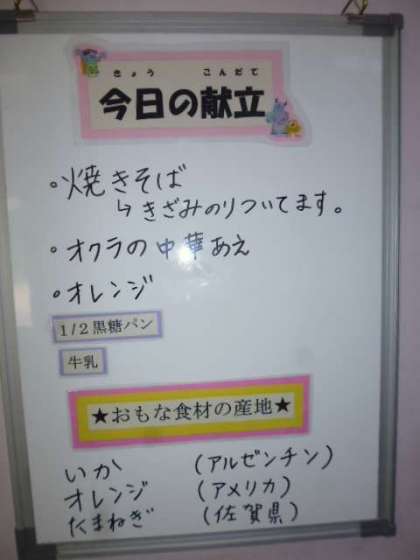 きょう こんだて
今日の献立
・焼きそば
↳きざみのりついてます。
・オクラの中華あえ
・オレンジ
1/2黒糖パン
牛乳
★おもな食材の産地★
いか (アルゼンチン)
オレンジ (アメリカ)
たまねぎ (佐賀県)